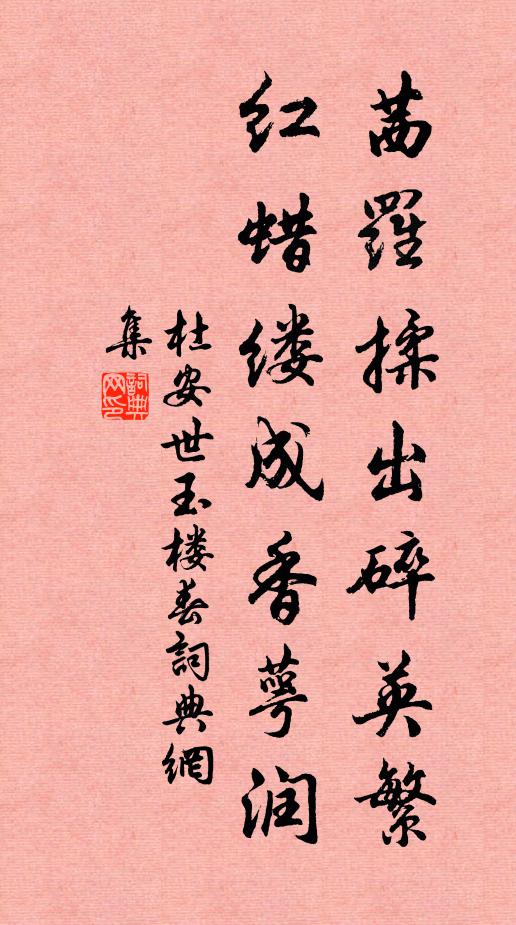 茜羅揉出碎英繁
红蜡缕成香萼润
杜安世玉楼春詞典網
集
詞典
网印